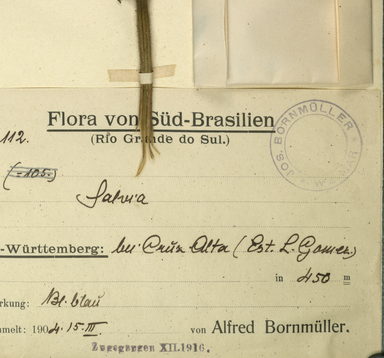 Flora von Süd-Brasilien
112.
(Rio Grande do Sul.)
(-105.)
Salvia
-Württemberg: bei Cruz Alta (Est. L. Gomez)
in 450 m
rkung: Bl. blau
mmelt: 1904. 15. III. von Alfred Bornmüller.
Zugegangen XII.1916.
JOS. BORNMÜLLER